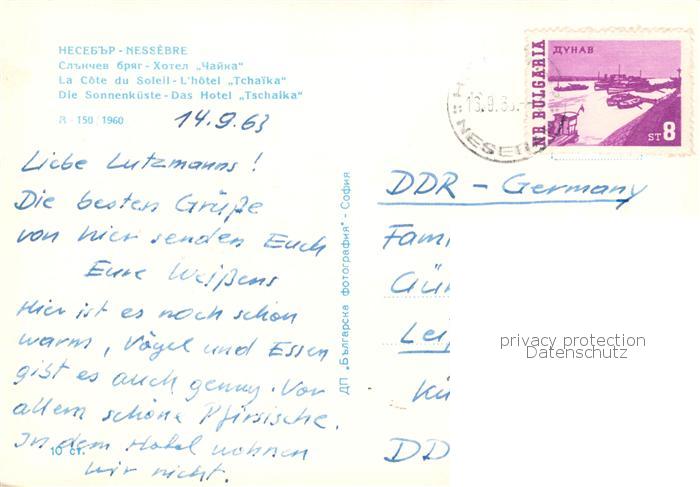 НЕСЕБЪР - NESSÈBRE
Слънчев бряг - Хотел „Чайка"
La Côte du Soleil - L'hôtel „Tchaïka"
Die Sonnenküste - Das Hotel „Tschaika"
Я - 150 / 1960
14.9.63
Liebe Lutzmanns !
Die besten Grüße
von hier senden Euch
Eure Weißens
Hier ist es noch schön
warm, Vögel und Essen
gibt es auch genug. Vor
allem schöne Pfirsiche.
In dem Hotel wohnen
wir nicht.
10 ст.
ДП „Българска фотография" - София
ДУНАВ
NR BULGARIA
ST 8
NESEB
DDR - Germany
Fam
Gün
Leip
DD
privacy protection
Datenschutz